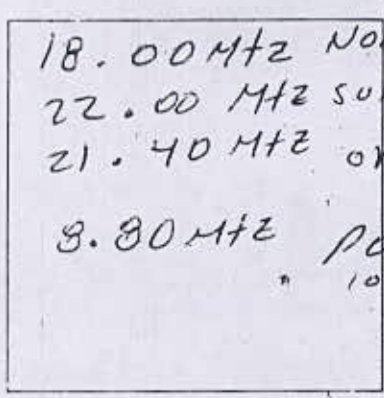 18.00 MHz No
22.00 MHz su
21.40 MHz or
8.80 MHz po
" 10